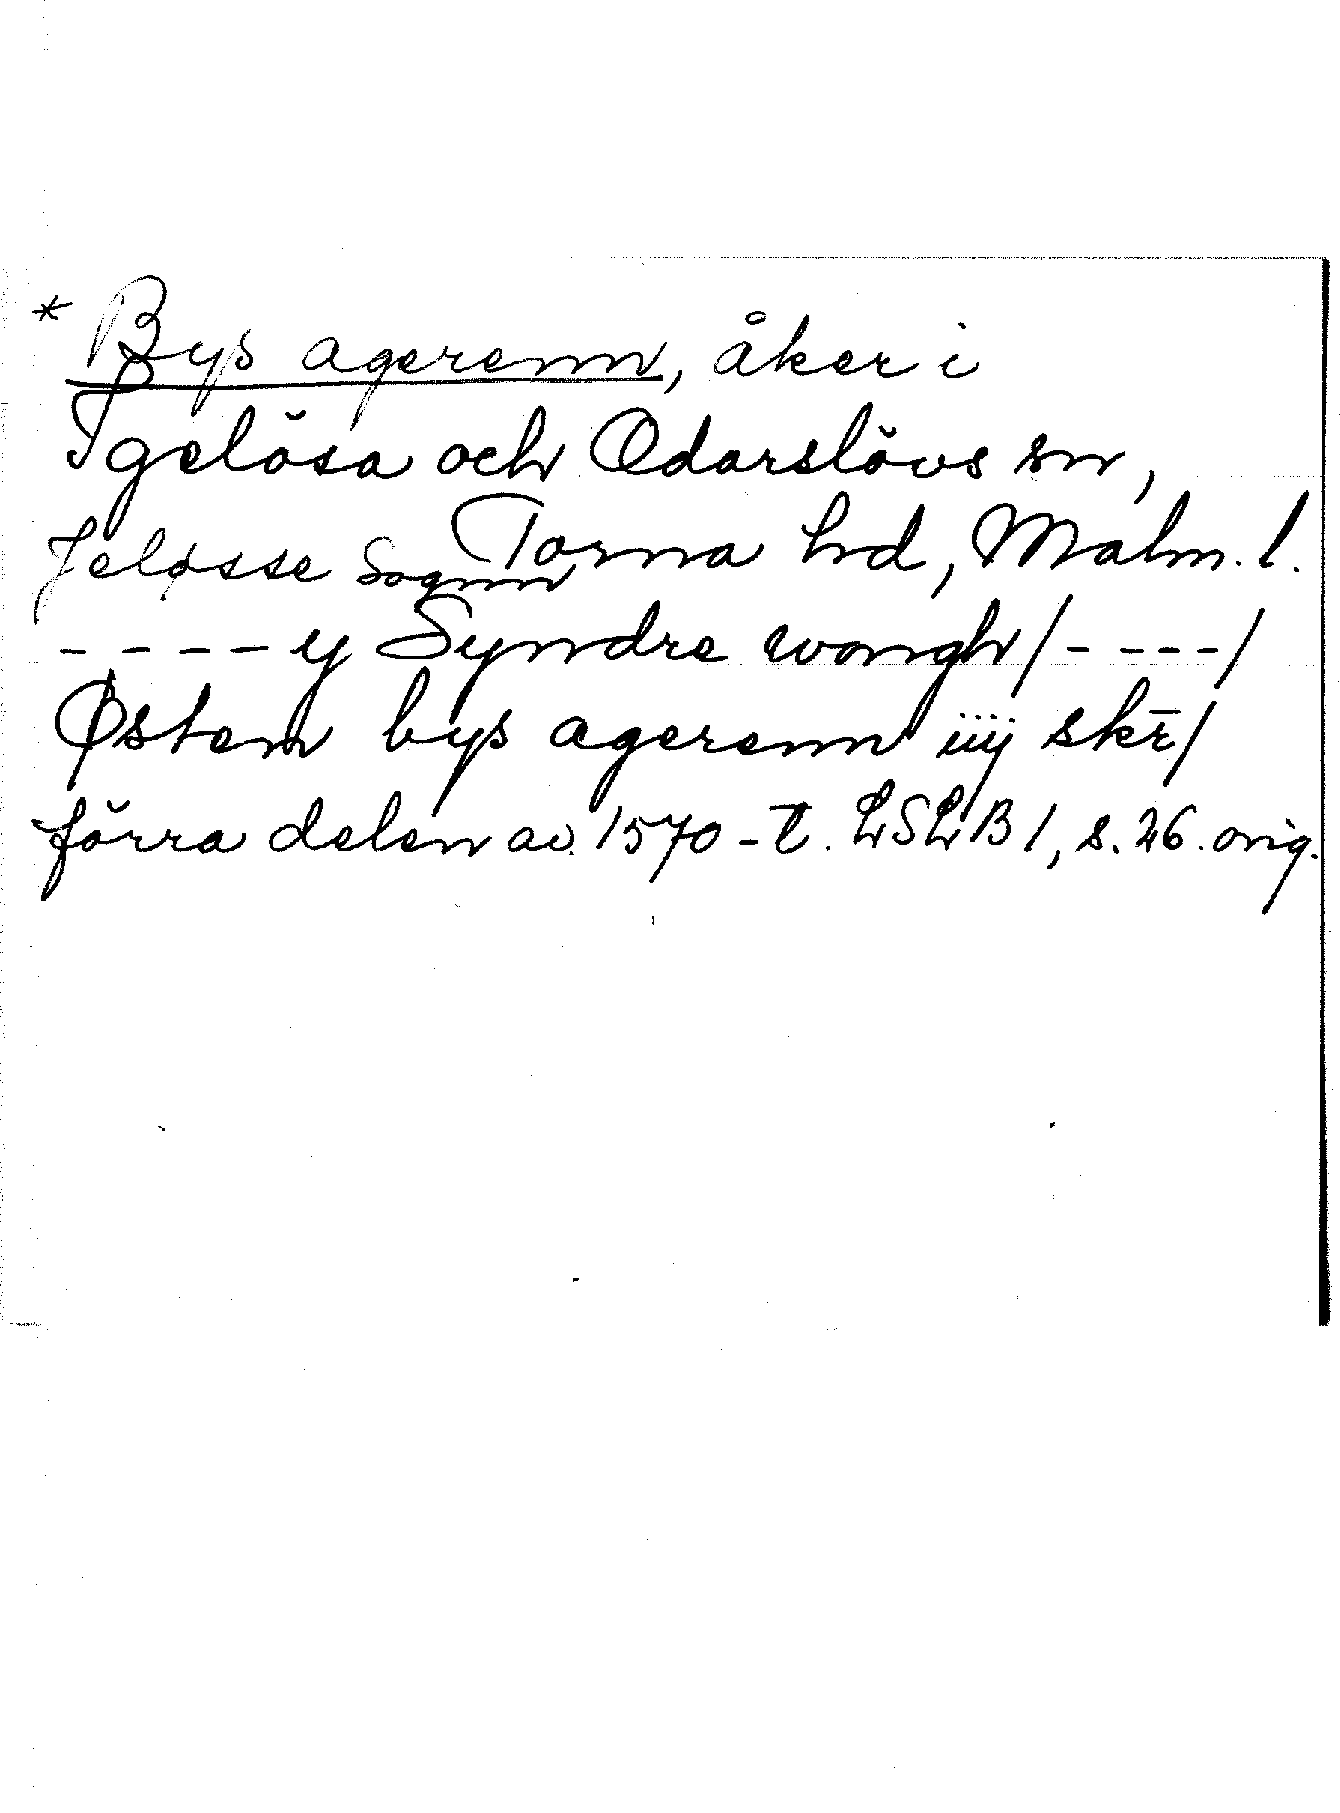 * Bys agerenn, åker i
Igelösa och Odarslövs sn,
Torna hd, Malm. l.
Jeløsse Sognn
- - - - - y Syndre wongh /- - - -/
Østen bys agerenn iiij skr̄/
förra delen av 1570-t. LSLB 1, s. 26. orig.